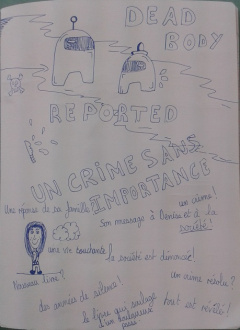 DEAD
BODY
REPORTED
UN CRIME SANS
IMPORTANCE
un crime !
Une réponse de sa famille
Son message à Denise et à la
société !
une vie touchante
la société est dénoncée !
Nouveau livre ?
un crime résolu ?
des années de silence !
tout est révélé !
la ligne qui soulage